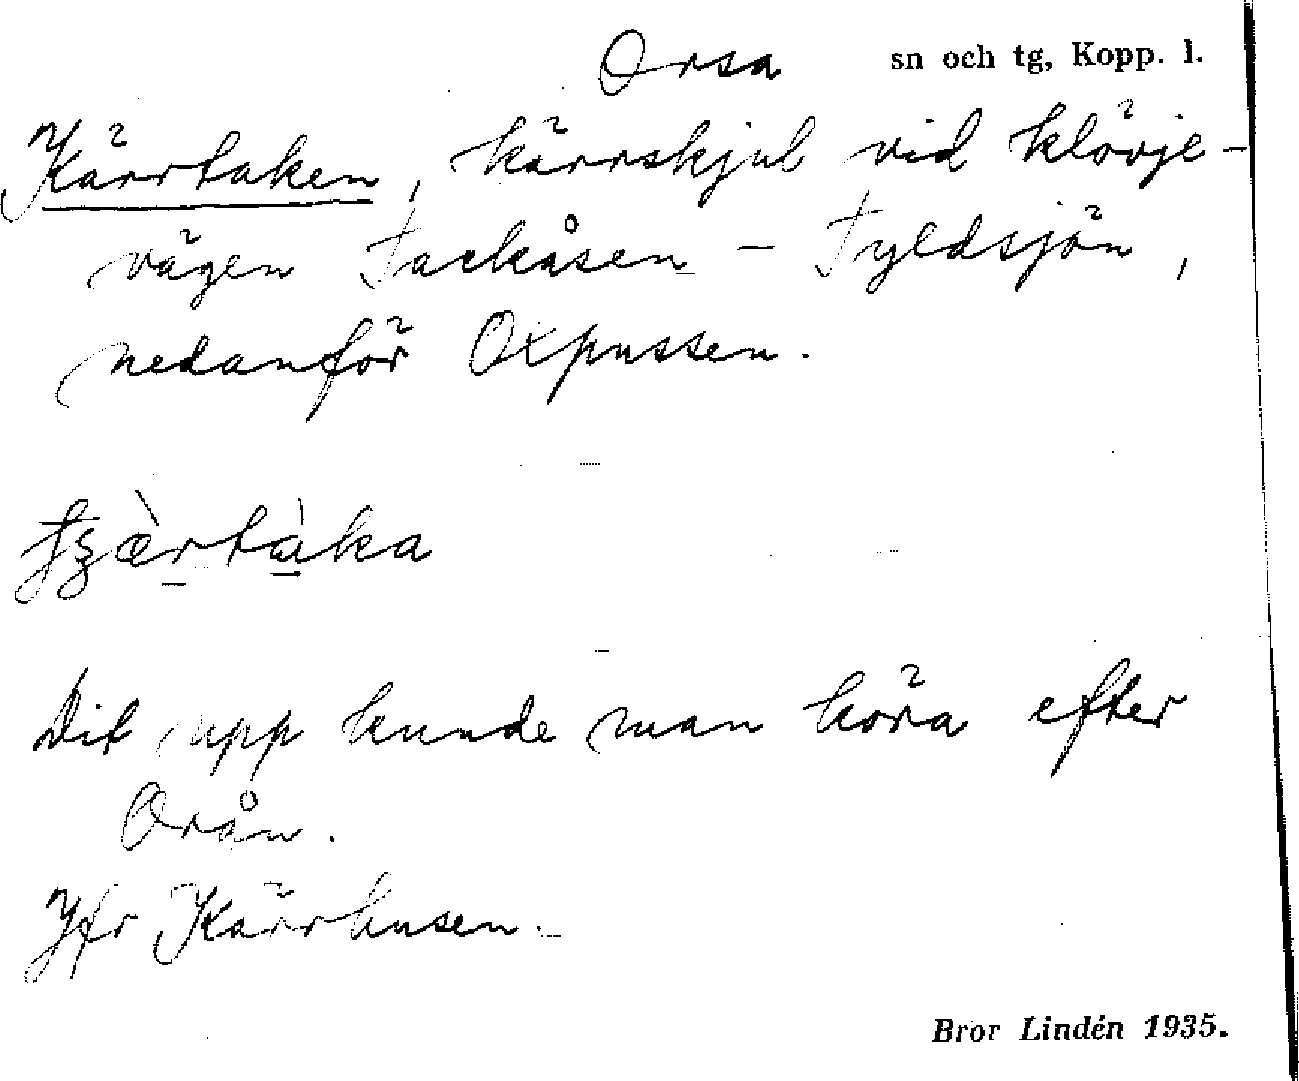 Orsa sn och tg, Kopp. l.
Kärrtaken, kärrskjul vid klövje-
vägen Tackåsen – Fyldsjön,
nedanför Oxpussen.
tʒæ̀rtàka
Dit upp kunde man köra efter
Orån.
Jfr Kärrhusen.
Bror Lindén 1935.